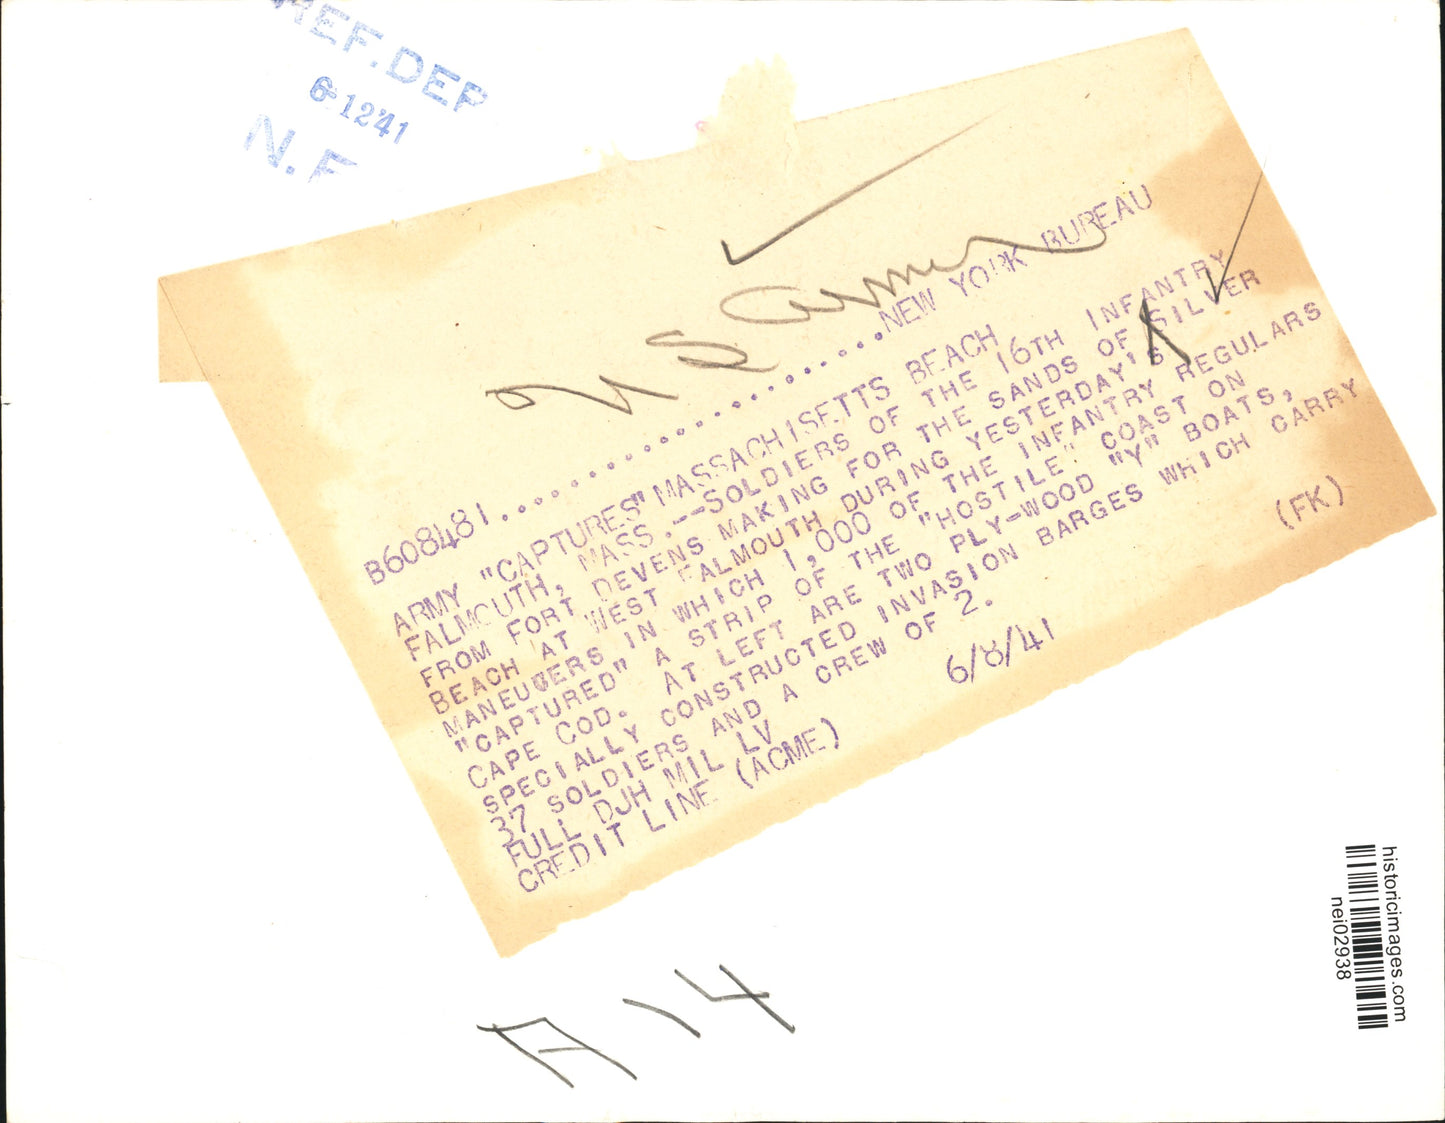 REF. DEP
6-12'41
N. E
US Army
B608481..............................NEW YORK BUREAU
ARMY "CAPTURES" MASSACHISETTS BEACH
FALMOUTH, MASS.--SOLDIERS OF THE 16TH INFANTRY
FROM FORT DEVENS MAKING FOR THE SANDS OF SILVER
BEACH AT WEST FALMOUTH DURING YESTERDAY'S
MANEUVERS IN WHICH 1,000 OF THE INFANTRY REGULARS
"CAPTURED" A STRIP OF THE "HOSTILE" COAST ON
CAPE COD. AT LEFT ARE TWO PLY-WOOD "Y" BOATS,
SPECIALLY CONSTRUCTED INVASION BARGES WHICH CARRY
37 SOLDIERS AND A CREW OF 2.
FULL DJH MIL LV
CREDIT LINE (ACME) 6/8/41 (FK)
A-14
historicimages.com
nei02938